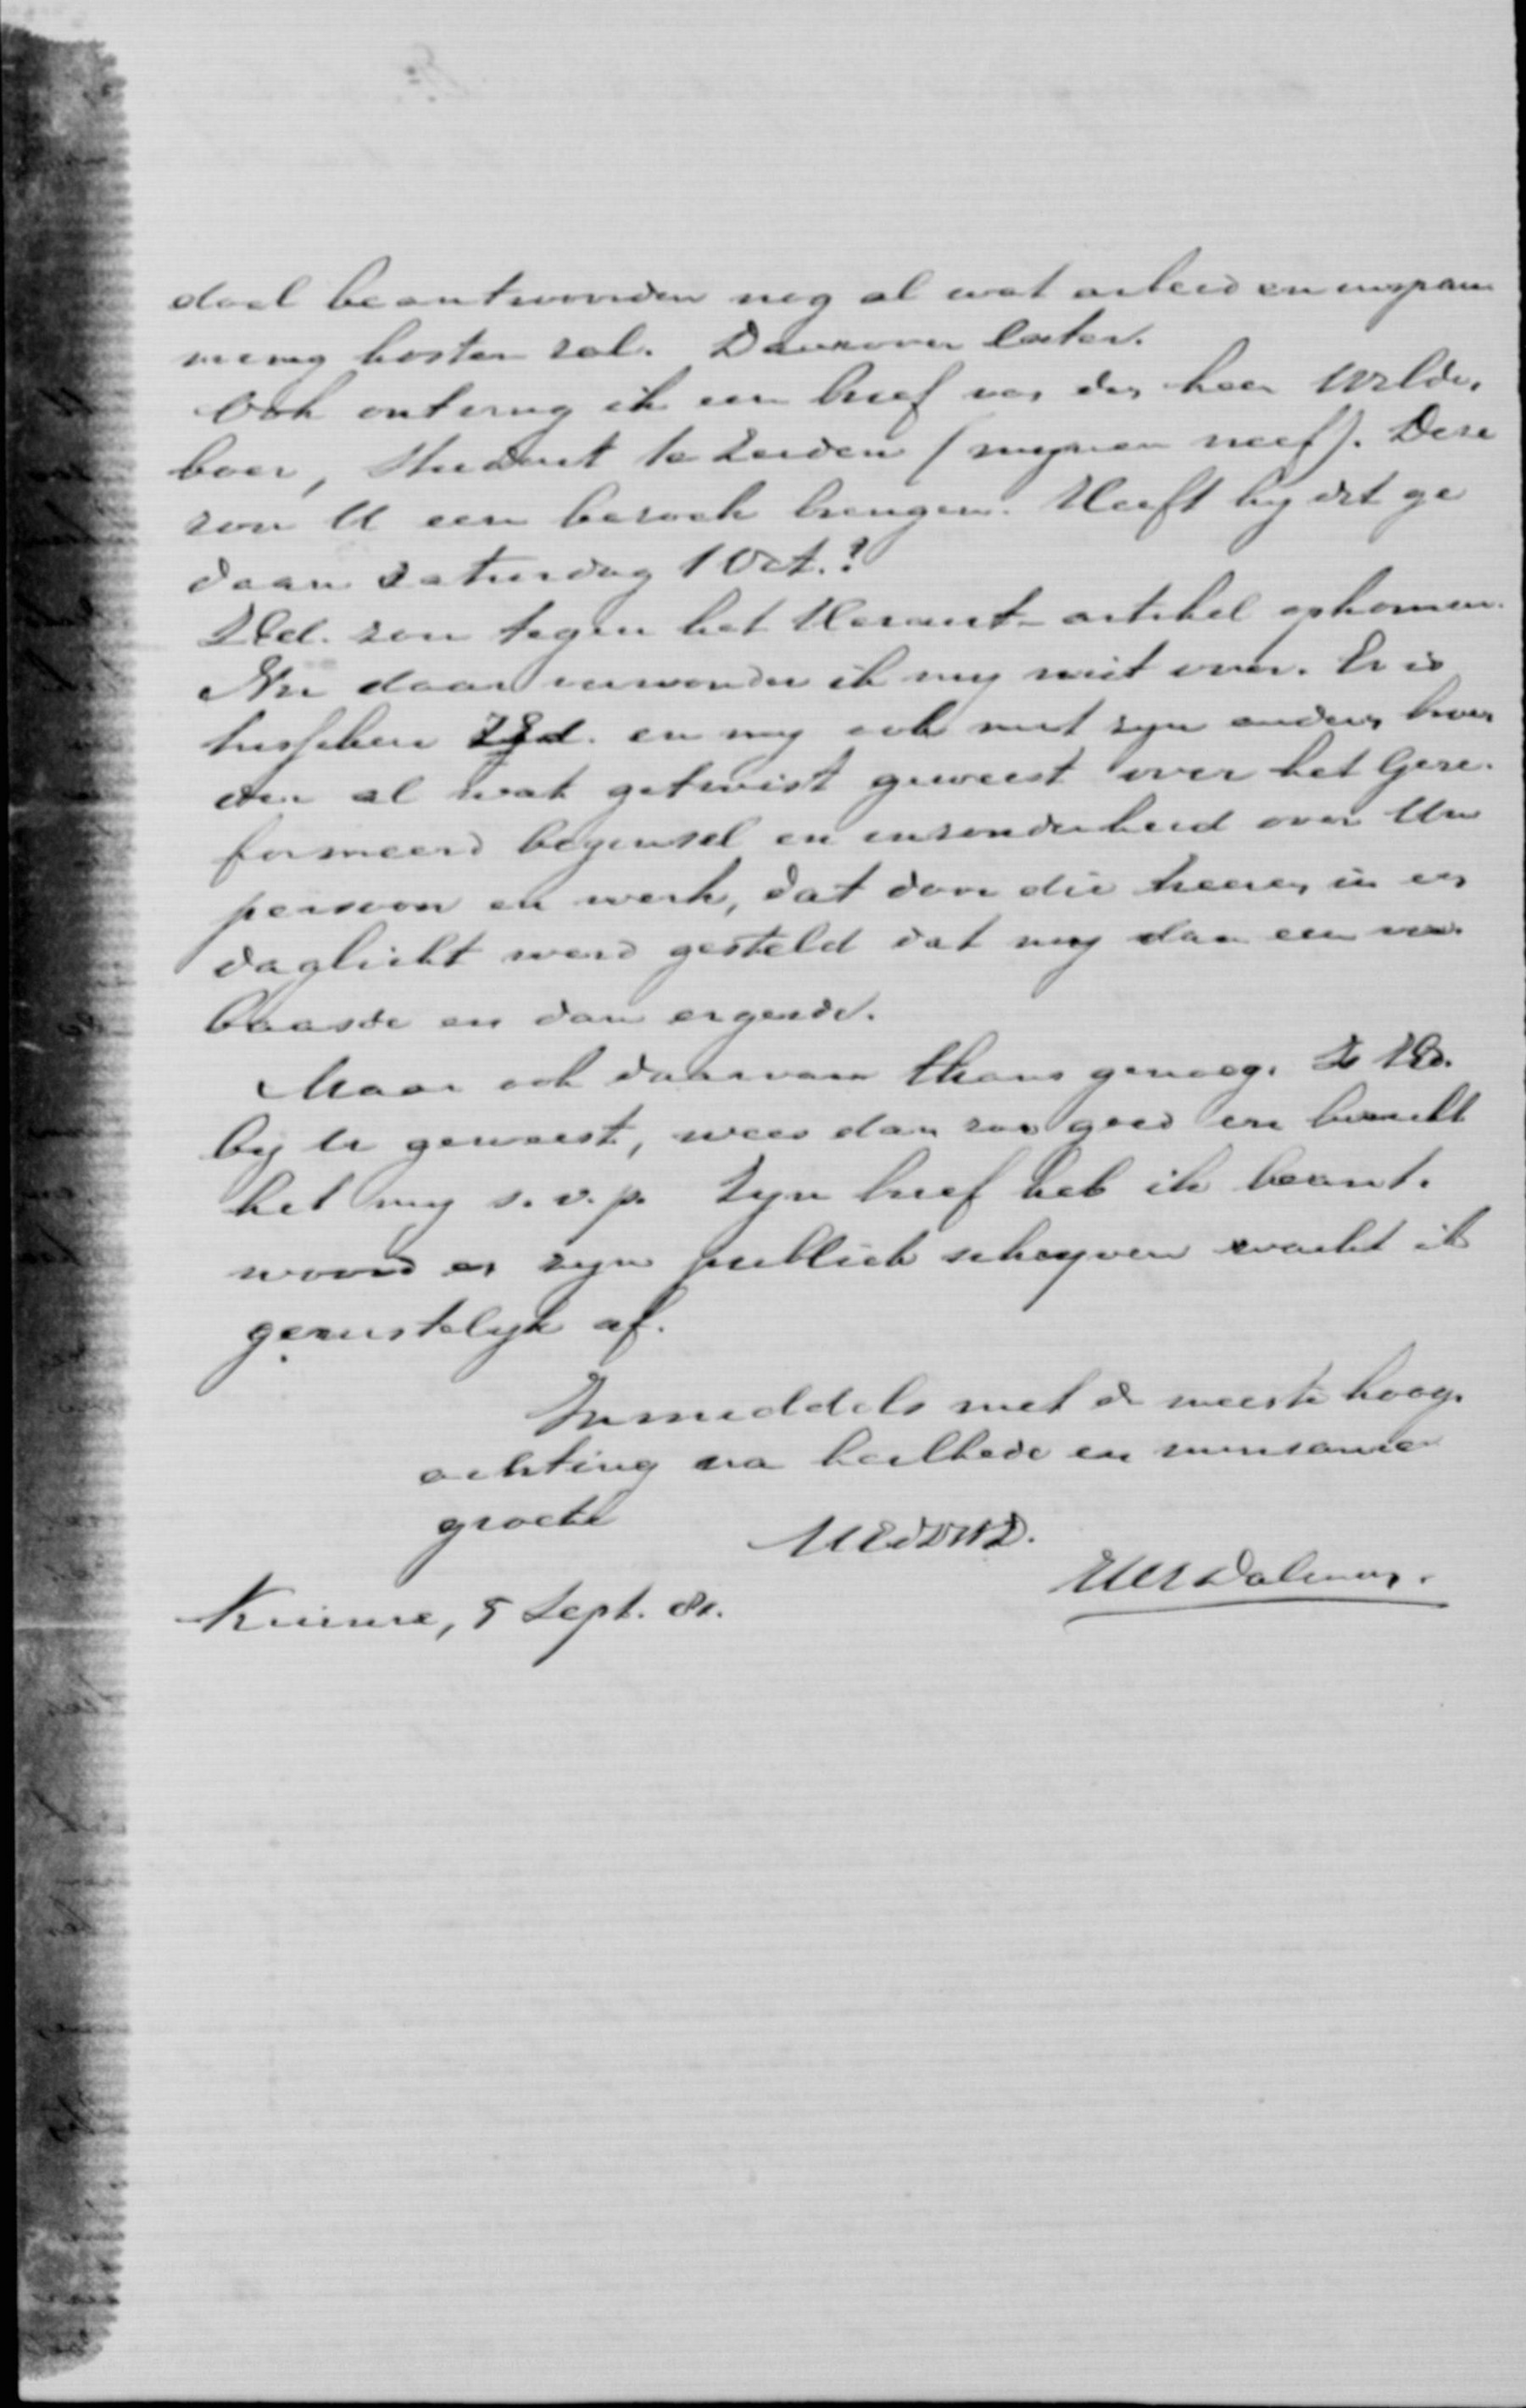 doel beantwoorden nog al wat arbeid en inspan
ning kosten zal. Daarover later.
Ook ontving ik een brief van den heer Wilde,
boer, Student te Leiden (mijnen neef). Deze
zou U een bezoek brengen. Heeft hij dit ge
daan Zaturdag 1 Oct.?
ZEd. zou tegen het Heraut-artikel opkomen.
Nu daar verwonder ik mij niet over. Er is
tusschen ZEd. en mij ook met zijn anderen broe
der al wat getwist geweest over het Gere.
formeerd beginsel en inzonderheid over Uw
persoon en werk, dat door die heeren in een
daglicht werd gesteld dat mij dan eens ver.
baasde en dan ergerde.
Maar ook daarvan thans genoeg. Is ZEd.
bij U geweest, wees dan zoo goed en bericht
het mij s.v.p. Zijn brief heb ik beant.
woord en zijn publiek schrijven wacht ik
gerustelijk af.
Inmiddels met de meeste hoog.
achting na heilbede en minzame
groete
UEdDWD.
Dalman.
Kuinre, 5 Sept. 81.